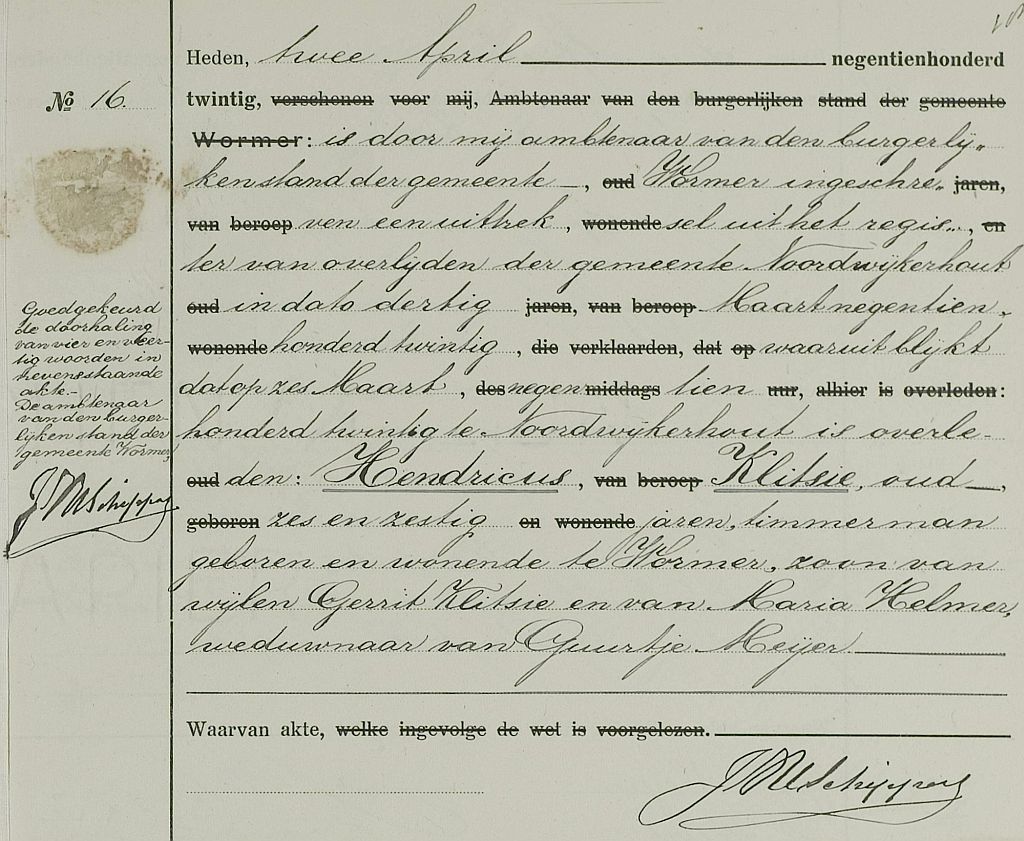 Heden, twee April negentienhonderd
No 16.
twintig, verschenen voor mij, Ambtenaar van den burgerlijken stand der gemeente
Wormer: is door mij ambtenaar van den burgerlij„
ken stand der gemeente —, oud Wormer ingeschre„ jaren,
van beroep ven een uittrek, wonende sel uit het regis„, en
ter van overlijden der gemeente Noordwijkerhout
oud in dato dertig jaren, van beroep Maart negentien„
wonende honderd twintig, die verklaarden, dat op waaruit blijkt
dat op zes Maart, des negen middags tien uur, alhier is overleden:
honderd twintig te Noordwijkerhout is overle-
oud den: Hendricus, van beroep Klitsie, oud —,
geboren zes en zestig en wonende jaren, timmerman
geboren en wonende te Wormer, zoon van
wijlen Gerrit Klitsie en van Maria Helmer,
weduwnaar van Guurtje Meijer.
Waarvan akte, welke ingevolge de wet is voorgelezen.
Goedgekeurd
de doorhaling
van vier en veer-
tig woorden in
nevenstaande
akte.-
De ambtenaar
van den burger-
lijken stand der
gemeente Wormer,